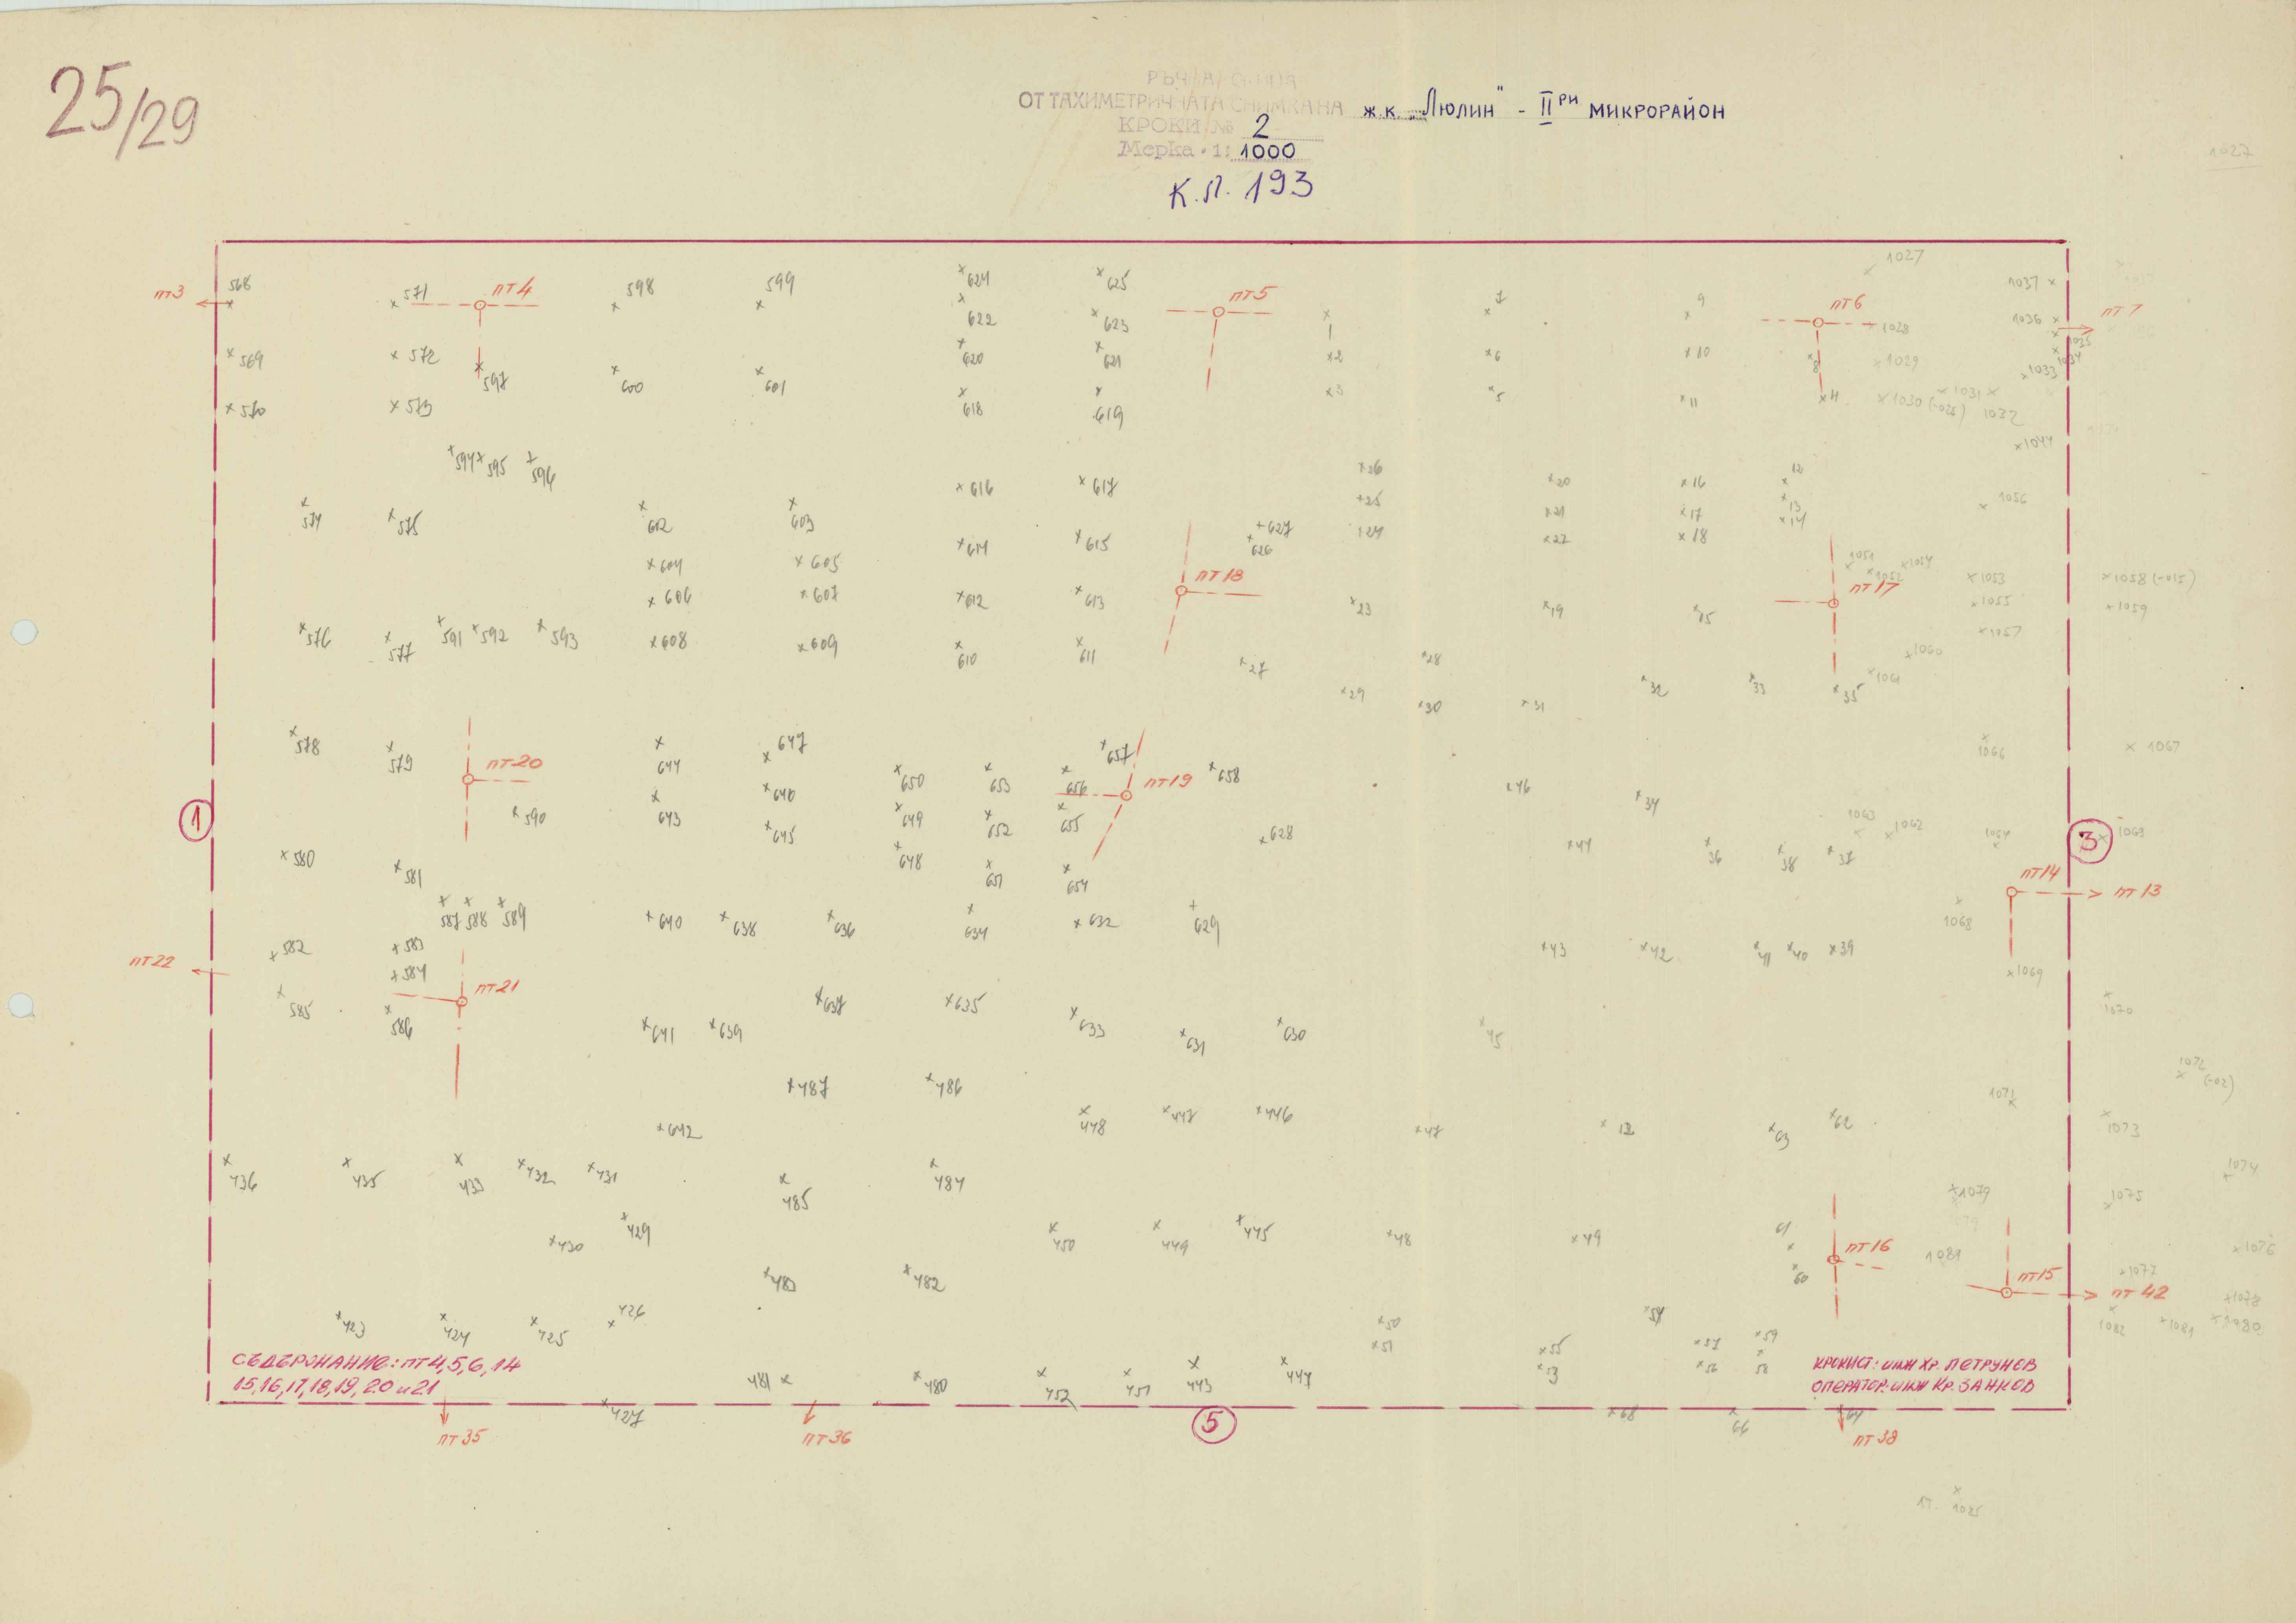 25/29
ОТ ТАХИМЕТРИЧНАТА СНИМКА НА ж.к. „Люлин" - IIри микрорайон
КРОКИ № 2
Мерка 1: 1000
К.П. 193
1027
568 571 пт4 598 599 624 625 пт5 7 9 пт6 1027 1037
пт3 622 623 1 1028 1036 пт7
569 572 597 600 601 620 621 2 6 10 8 1029 1033 1034 1035
570 573 618 619 3 5 11 1030 1031 1032
1044
594 595 596 616 617 26 20 16 12
574 575 602 603 25 21 17 13 14 1056
614 615 627 626 24 22 18
604 605 пт18 1051 1052 1054 1053 1058 (-015)
606 607 612 613 23 19 15 пт17 1055 1059
576 577 591 592 593 608 609 610 611 27 28 1057 1060
29 30 31 32 33 35 1061
578 579 пт20 644 647 650 653 656 657 пт19 658 1066 1067
590 643 646 645 649 652 655 628 46 34 1063 1062
580 581 648 651 654 44 36 38 37 1064
1 3
пт14 пт13
587 588 589 640 638 636 634 632 629 1068
582 583 43 42 41 40 39
пт22 584 1069
585 586 пт21 637 635 633 631 630 45 1070
641 639
487 486 1071 1072 (-02)
642 448 447 446 47 12 63 62 1073
436 435 433 432 431 485 484 1079 1074 1075
430 429 450 449 445 48 49 61 пт16 1081 1076
483 482 60 пт15 1077 пт42 1078
423 424 425 426 50 51 54 1082 1081 1080
55 53 57 56 59 58
СЪДЪРЖАНИЕ: пт 4,5,6,14
15,16,17,18,19,20 и 21
481 480 452 451 443 444
КРОКИСТ: инж Хр. ПЕТРУНОВ
ОПЕРАТОР: инж Кр. ЗАНКОВ
427 5 68 66 64
пт35 пт36 пт38